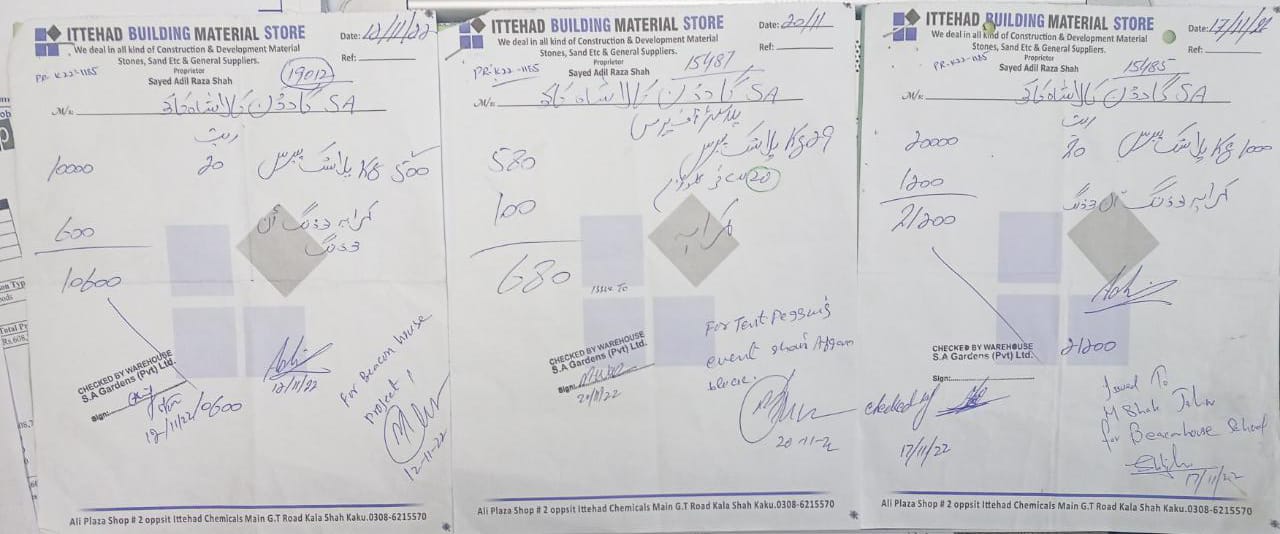 ITTEHAD BUILDING MATERIAL STORE
We deal in all kind of Construction & Development Material
Stones, Sand Etc & General Suppliers.
Proprietor
Sayed Adil Raza Shah
Date: 12/11/22
Ref:
PR-K22-1185
19012
M/s. SA گارڈن کالا شاہ کاکو
ریٹ
500 Kg پلاسٹک پیرس 20 10000
کرایہ 600
10600
CHECKED BY WAREHOUSE
S.A Gardens (Pvt) Ltd.
Sign:
12/11/22
10600
12/11/22
For Beacon House
Project
12-11-22
Ali Plaza Shop # 2 oppsit Ittehad Chemicals Main G.T Road Kala Shah Kaku.0308-6215570
ITTEHAD BUILDING MATERIAL STORE
We deal in all kind of Construction & Development Material
Stones, Sand Etc & General Suppliers.
Proprietor
Sayed Adil Raza Shah
Date: 20/11
Ref:
PR-K22-1185
15487
M/s. SA گارڈن کالا شاہ کاکو
پلاسٹر آف پیرس
29 Kg پلاسٹک پیرس 580
20
کرایہ 100
680
Issue To
For Tent Pegging
event
block.
CHECKED BY WAREHOUSE
S.A Gardens (Pvt) Ltd.
Sign:
20/11/22
20-11-22
Ali Plaza Shop # 2 oppsit Ittehad Chemicals Main G.T Road Kala Shah Kaku.0308-6215570
ITTEHAD BUILDING MATERIAL STORE
We deal in all kind of Construction & Development Material
Stones, Sand Etc & General Suppliers.
Proprietor
Sayed Adil Raza Shah
Date: 17/11/22
Ref:
PR-K22-1185
15485
M/s. SA گارڈن کالا شاہ کاکو
ریٹ
1000 Kg پلاسٹک پیرس 20 20000
کرایہ 1200
21200
21200
CHECKED BY WAREHOUSE
S.A Gardens (Pvt) Ltd.
Sign:
checked by
17/11/22
Issued To
M Shah
for Beaconhouse School
17/11/22
Ali Plaza Shop # 2 oppsit Ittehad Chemicals Main G.T Road Kala Shah Kaku.0308-6215570